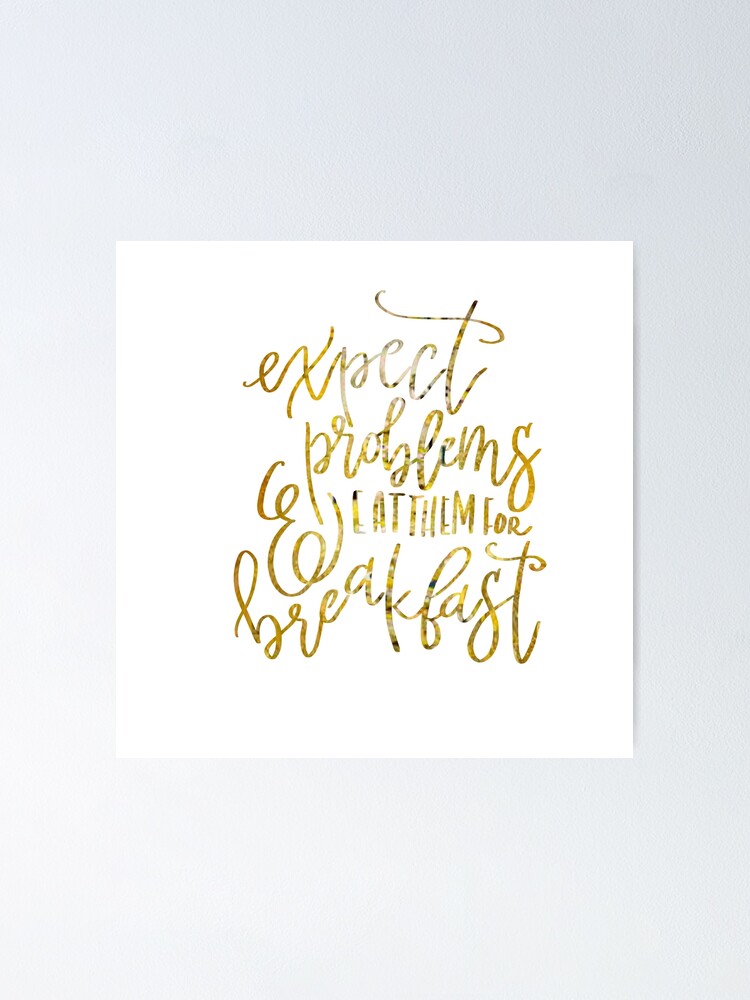 expect
problems
& EAT THEM FOR
breakfast